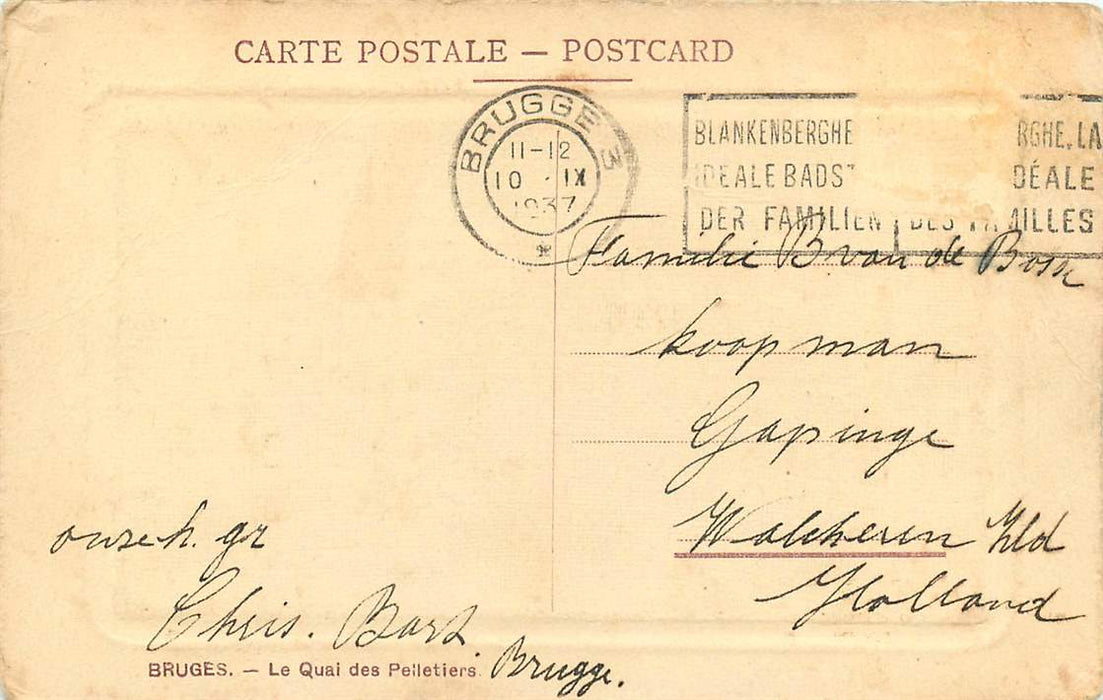 CARTE POSTALE — POSTCARD
BRUGGE 3
11-12
10 . IX
1937
BLANKENBERGHE
IDEALE BADST
DER FAMILIEN
RGHE. LA
DÉALE
DES FAMILLES
Familie B van de
koopman
Gapinge
Walcheren Zld
Holland
onze h. gr
Chris.
Brugge.
BRUGES. — Le Quai des Pelletiers.